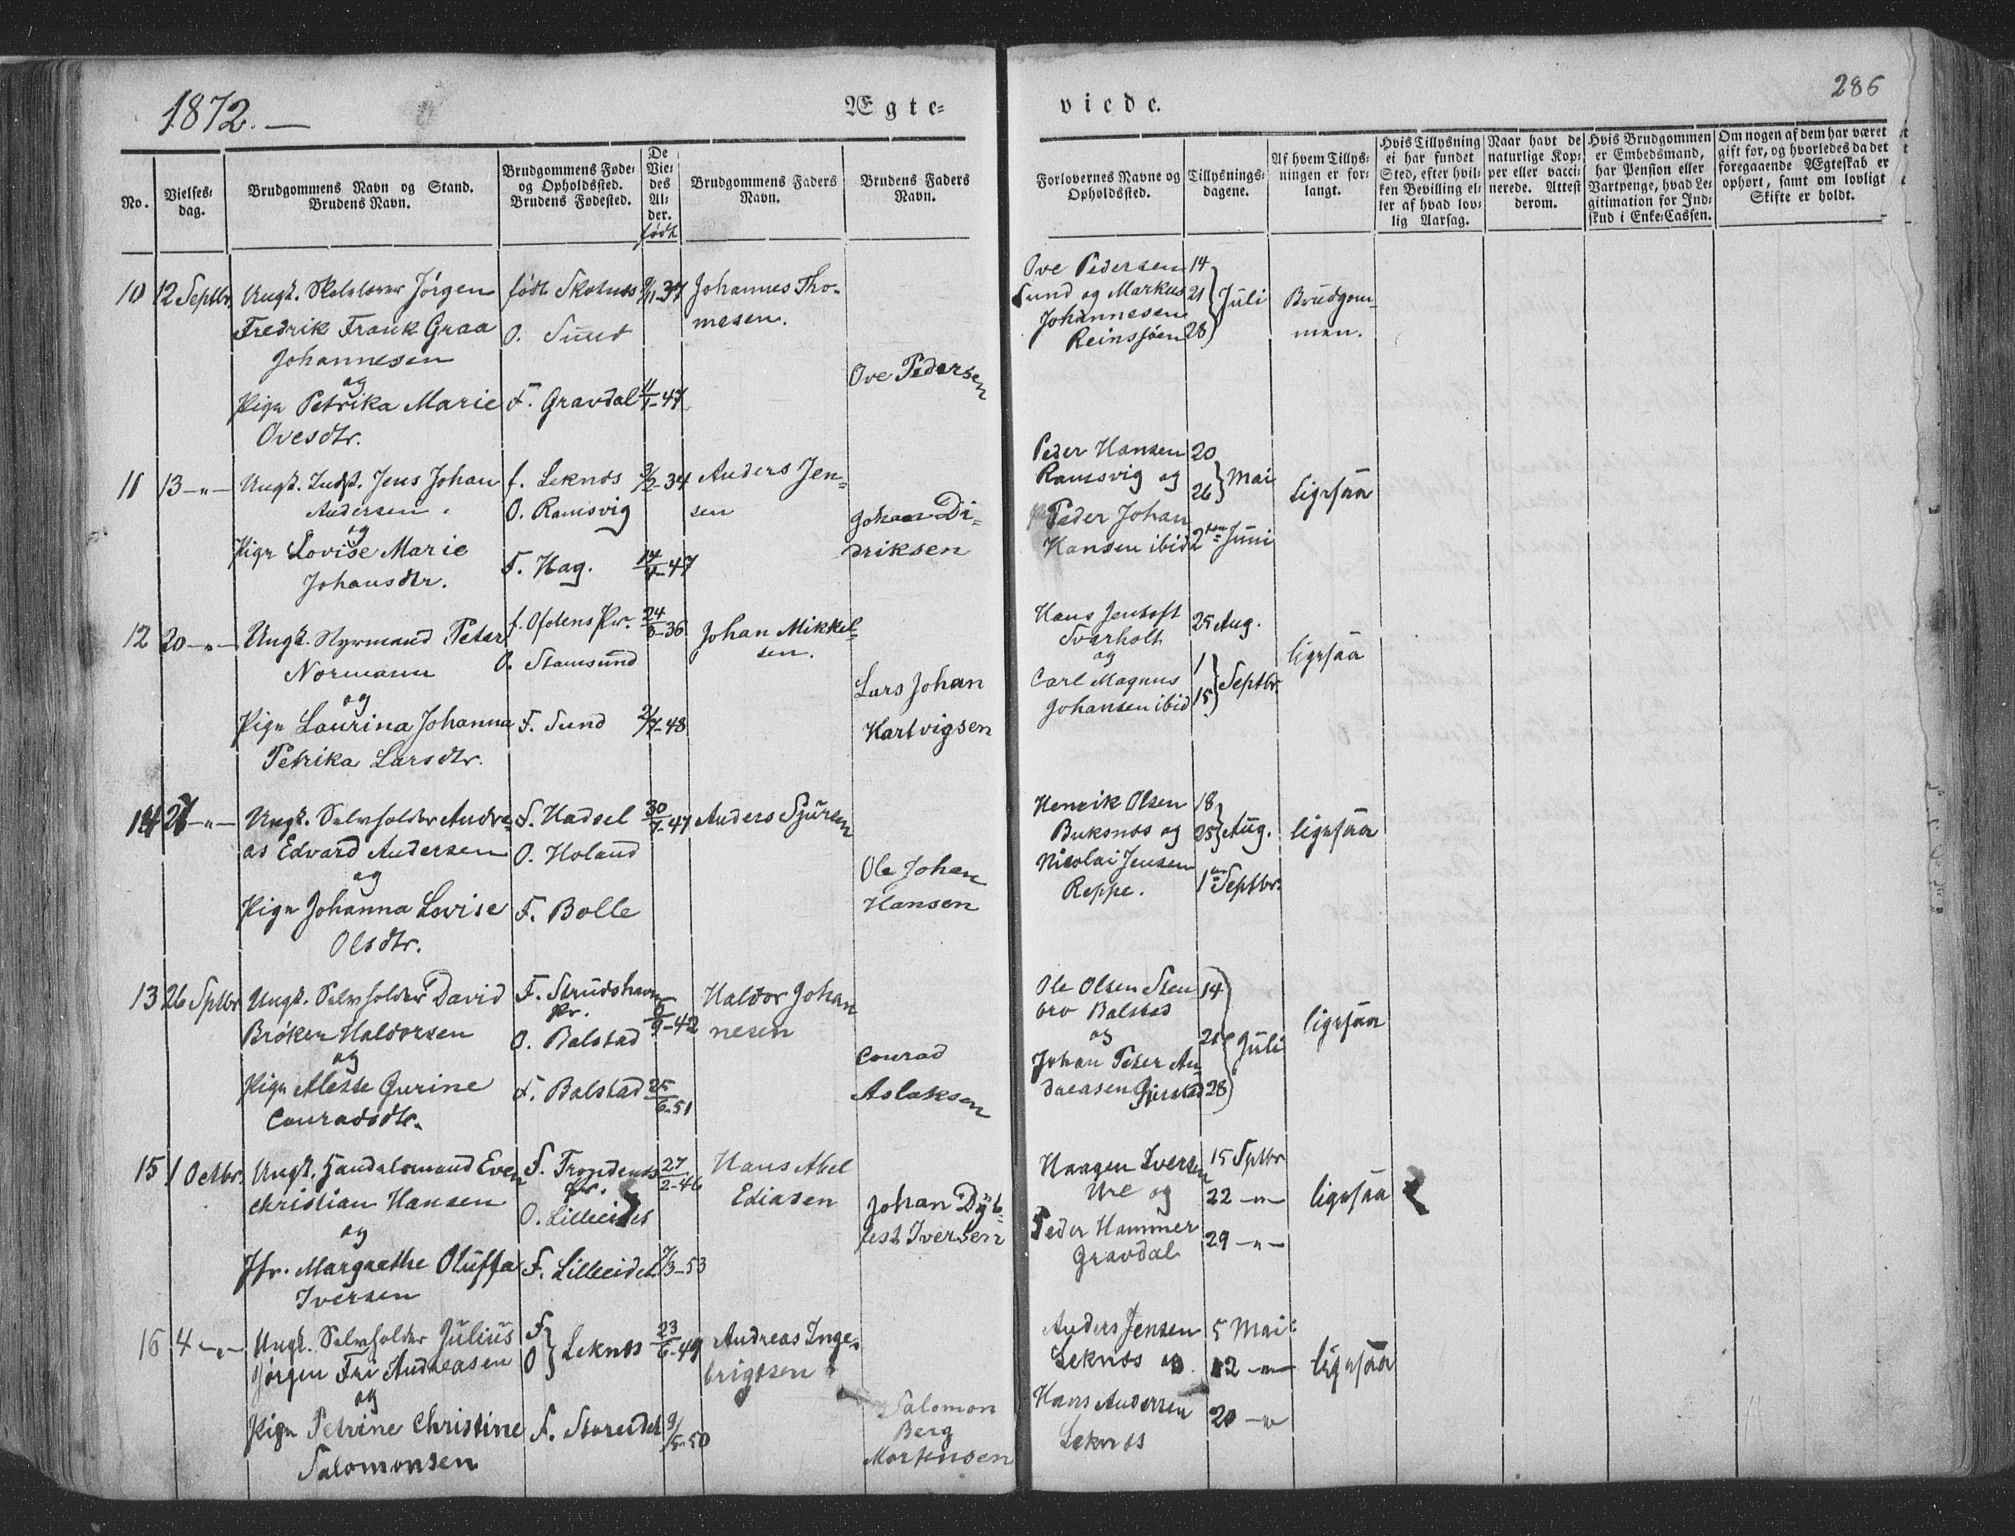 1872. —
Ægte-
viede.
286
No.
Vielses-
dag.
Brudgommens Navn og Stand.
Brudens Navn.
Brudgommens Føde-
og Opholdssted.
Brudens Fødested.
De
Vie-
des
Al-
der.
født
Brudgommens Faders
Navn.
Brudens Faders
Navn.
Forlovernes Navne og
Opholdssted.
Tillysnings-
dagene.
Af hvem Tillys-
ningen er for-
langt.
Hvis Tillysning
ei har fundet
Sted, efter hvil-
ken Bevilling el-
ler af hvad lov-
lig Aarsag.
Naar havt de
naturlige Kop-
per eller vacci-
nerede. Attest
derom.
Hvis Brudgommen
er Embedsmand,
har Pension eller
Vartpenge, hvad Le-
gitimation for Ind-
skud i Enke-Cassen.
Om nogen af dem har været
gift for, og hvorledes da det
foregaaende Ægteskab er
ophørt, samt om lovligt
Skifte er holdt.
10 12 Septbr. Ungk. Jørgen
Fredrik Frank Graa
Johannesen
og
Pige Petrika Marie
Ovesdtr.
født Skotnes
O. Sund
F. Gravdal
11/1-47
Johannes Tho-
mesen.
Ove Pedersen
Ove Pedersen
Sund og Markus
Johannesen
Reinsjøen
14
21 Juli
28
Brudgom-
men.
11 13 -"- Ungk. Inds. Jens Johan
Andersen
og
Pige Lovise Marie
Johansdtr.
f. Leknes
O. Ramsvig
F. Hag.
3/2-34
14/4-47
Anders Jen-
sen
Johan Di-
driksen
Peder Hansen
Ramsvig og
Peder Johan
Hansen ibid
20
26 Mai
2den Juni
Ligesaa
12 20 -"- Ungk. Styrmand Peter
Normann
og
Pige Laurina Johanna
Petrika Larsdtr.
f. Ofotens Pr.
O. Stamsund
F. Sund
24/6-36
2/7-48
Johan Mikkel-
sen.
Lars Johan
Hartvigsen
Hans Jentoft
Svarholt
og
Carl Magnus
Johansen ibid
25 Aug.
1
15 Septbr.
ligesaa
14 27 -"- Ungk. Selvholder Andre-
as Edvard Andersen
og
Pige Johanna Lovise
Olsdtr.
F. Hadsel
O. Holand
F. Bolle
30/7-47
Anders Sjursen
Ole Johan
Hansen
Henrik Olsen
Buksnes og
Nicolai Jensen
Reppe.
18
25 Aug.
1en Septbr.
ligesaa
13 26 Sptbr. Ungk. Selvholder David
Brøker Haldorsen
og
Pige Alette Gurine
Conradsdtr.
F. Strudshavn
Pr.
O. Balstad
F. Balstad
6/9-42
25/6-51
Haldor Johan
nesen
Conrad
Aslaksen
Ole Olsen Sten
bro Balstad
og
Johan Peter An-
dreasen
14
21 Juli
28
ligesaa
15 1 Octbr. Ungk. Handelsmand Even
Christian Hansen
og
Jfr. Margrethe Oluffa
Iversen
F. Trondenes
Pr.
O. Lilleeidet
F. Lilleeidet
27/2-46
7/3-53
Hans Abel
Ediasen
Johan Dyb-
fest Iversen
Haagen Iversen
Ure og
Peder Hammer
Gravdal
15 Sptbr
22 -"-
29 -"-
ligesaa
16 4 -"- Ungk. Selvholder Julius
Jørgen Fri Andreasen
og
Pige Petrine Christine
Salomonsen
F
O Leknes
F. Storeidet
23/6-49
9/5-50
Andreas Inge-
brigtsen
Salomon
Berg
Mortensen
Anders Jensen
Leknes og
Hans Andersen
Leknes
5 Mai
12 -"-
20 -"
ligesaa